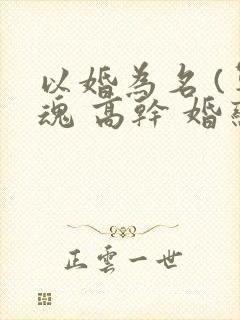 以婚為名(
魂 高幹 婚
正雲一世